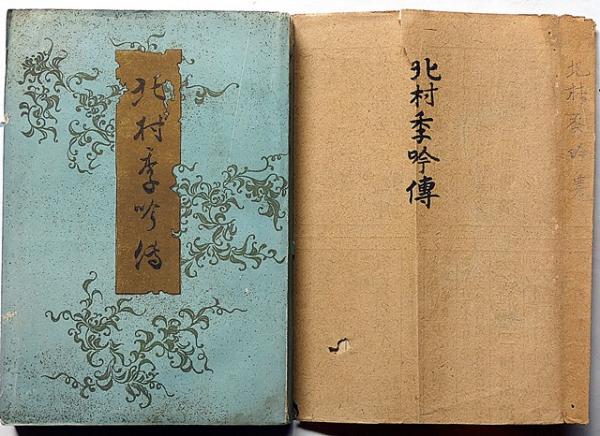 北村季吟傳
北村季吟傳
北村季吟